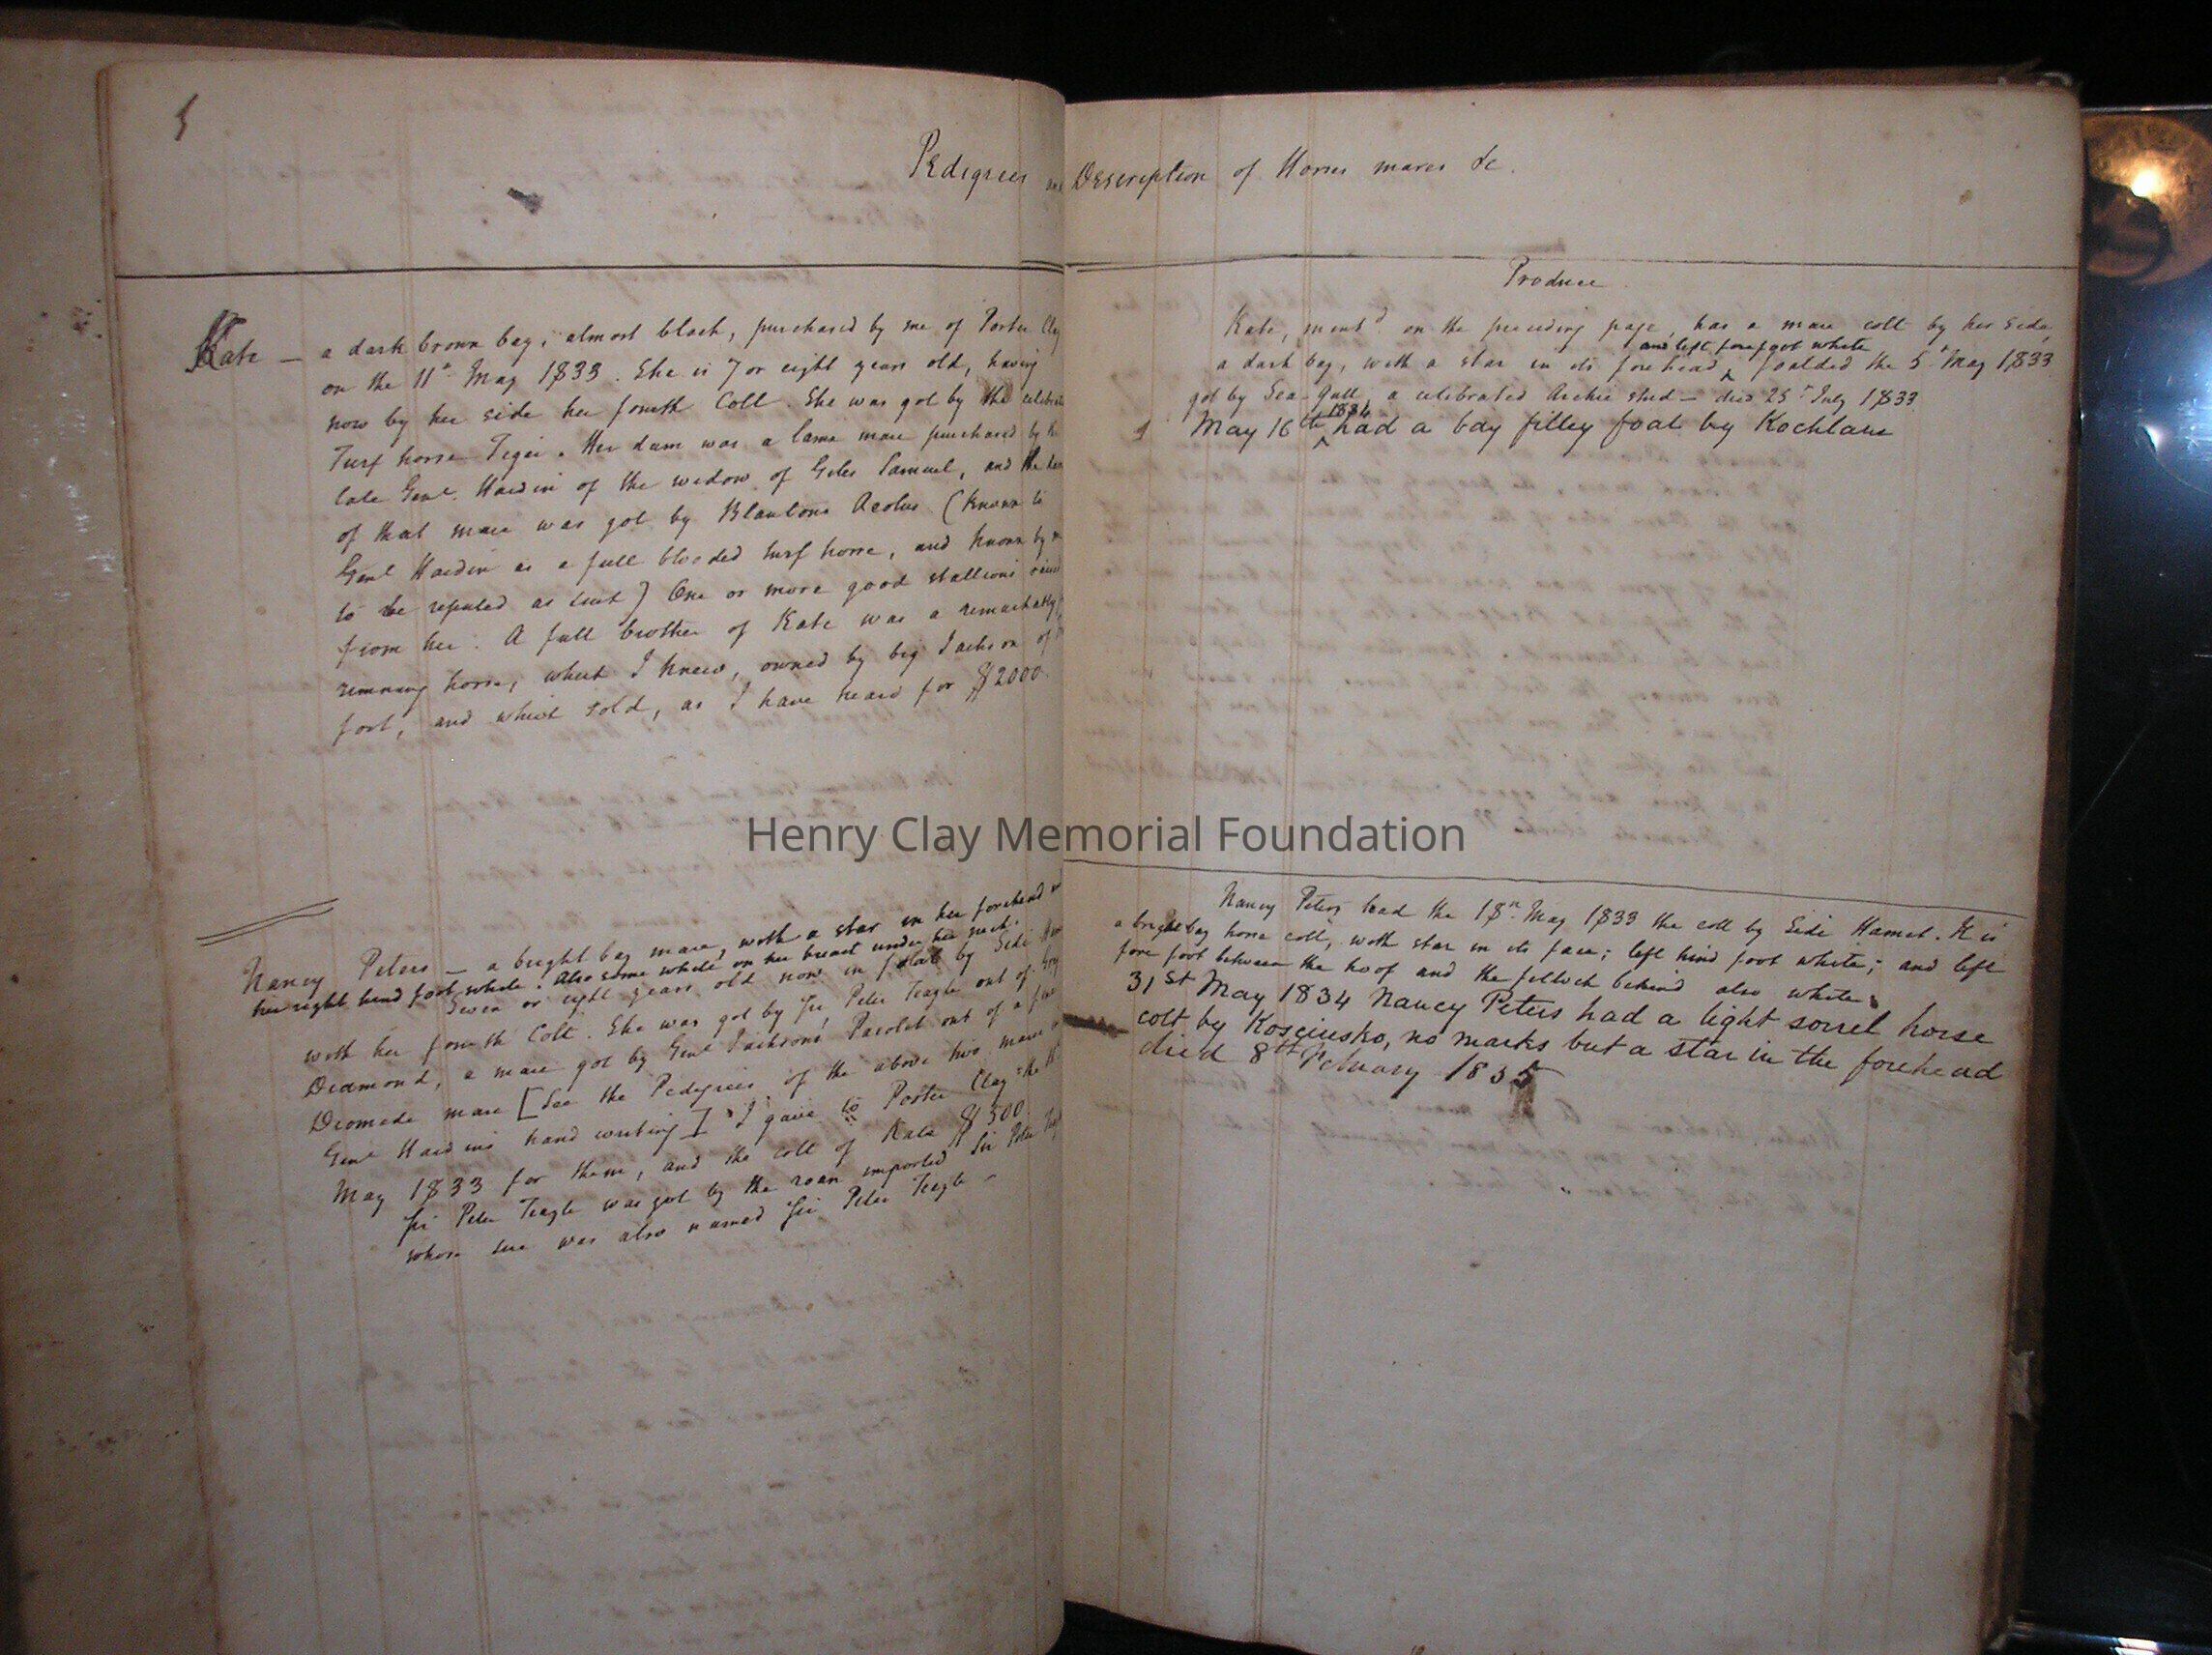 5
Pedigrees and Description of Horses mares &c.
Kate — a dark brown bay, almost black, purchased by me of Porter Clay
on the 11th May 1833. She is 7 or eight years old, having
now by her side her fourth Colt. She was got by the celebrated
Turf horse Tiger. Her dam was a lame mare purchased by the
late Genl. Hardin of the widow of Giles Samuel, and the dam
of that mare was got by Blantons Aeolus (known to
Genl Hardin as a full blooded turf horse, and known by
to be reputed as such) One or more good stallions
from her. A full brother of Kate was a remarkably
running horse, which I knew, owned by big Jackson of
fort, and which sold, as I have heard for $2000.
Nancy Peters — a bright bay mare, with a star in her forehead
her right hind foot white. Also some white on her breast under her neck.
Seven or eight years old now in foal by Sidi
with her fourth Colt. She was got by Sir Peter Teagle out of
Diamond, a mare got by Genl Jackson's Pacolet out of a fine
Diomede mare [See the Pedigrees of the above two mares
Genl Hardins hand writing] I gave to Porter Clay the
May 1833 for them, and the colt of Kate $500
Sir Peter Teagle was got by the roan imported Sir Peter
whose sire was also named Sir Peter Teagle —
Produce
Kate, mentd on the preceding page, has a mare colt by her side,
and left forefoot white
a dark bay, with a star in its forehead, foalded the 5th May 1833
got by Sea-Gull, a celebrated Archie stud — died 25th July 1833
1834
May 16th had a bay filley foal by Kochlani
Nancy Peters had the 18th May 1833 the colt by Sidi Hamet. It is
a bright bay horse colt, with star in its face; left hind foot white; and left
fore foot between the hoof and the fetlock behind also white.
31st May 1834 Nancy Peters had a light sorrel horse
colt by Kosciusko, no marks but a star in the forehead
died 8th Febuary 1835
Henry Clay Memorial Foundation